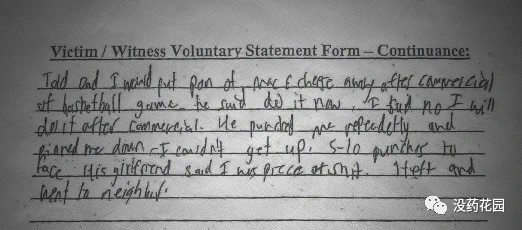 Victim / Witness Voluntary Statement Form – Continuance:
Told Dad I would put pan of mac & cheese away after commercial
of basketball game. he said do it now, I said no I will
do it after commercial. He punched me repeatedly and
pinned me down - I couldn't get up. 5-10 punches to
face. His girlfriend said I was piece of shit. I left and
went to neighbur.
没药花园